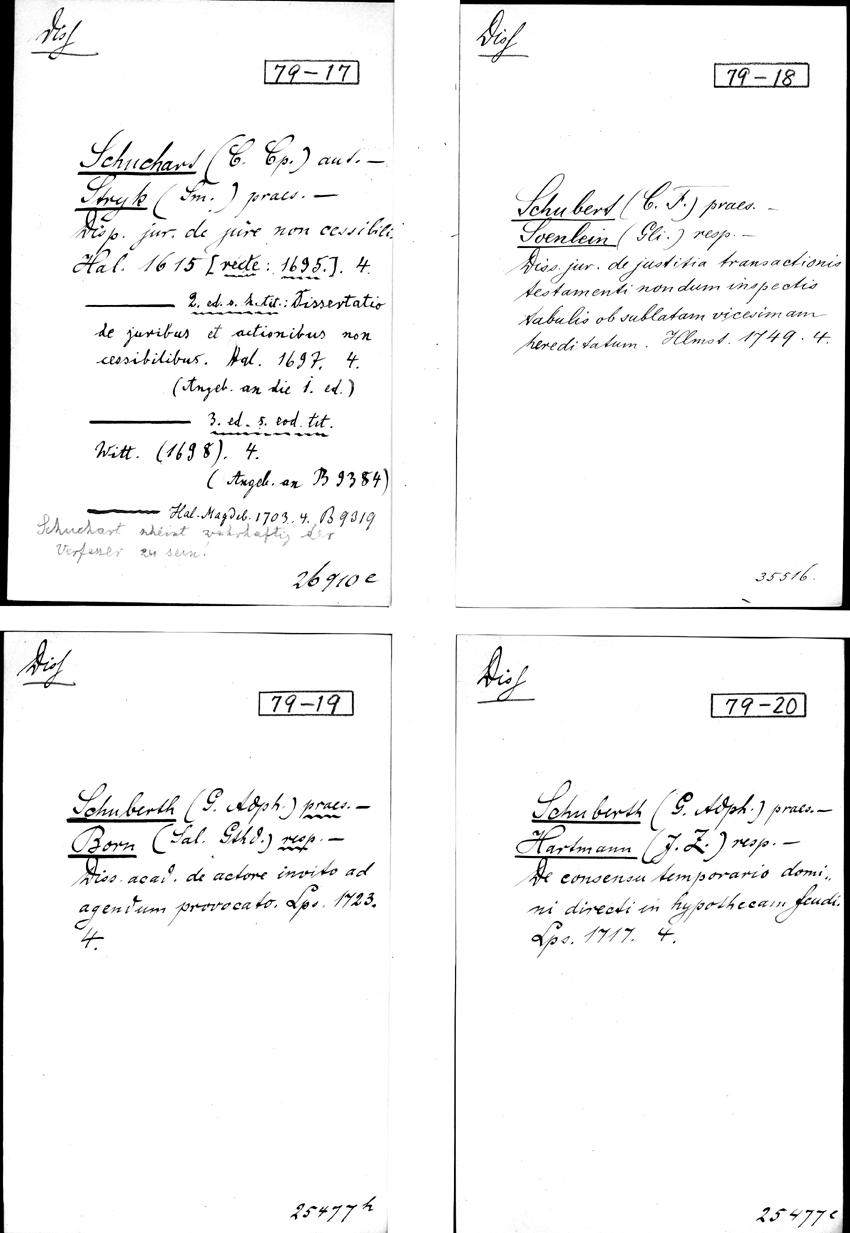 Diss
79-17
Schuchart (C. Cp.) aut. —
Stryk (Sm.) praes. —
Disp. jur. de jure non cessibili.
Hal. 1615 [recte: 1695.]. 4.
——— 2. ed. s. h. tit.: Dissertatio
de juribus et actionibus non
cessibilibus. Hal. 1697. 4.
(Angeb. an die 1. ed.)
——— 3. ed. s. eod. tit.
Witt. (1698). 4.
(Angeb. an B 9384)
——— Hal. Magdeb. 1703. 4. B 9319
Schuchart scheint wahrhaftig der
Verfasser zu sein!
26910 e
Diss
79-18
Schubert (C. F.) praes. —
Soenlein (Gli.) resp. —
Diss. jur. de justitia transactionis
testamenti nondum inspectis
tabulis ob sublatam vicesimam
hereditatum. Hlmst. 1749. 4.
35516.
Diss
79-19
Schuberth (G. Adph.) praes. —
Born (Sal. Gthd.) resp. —
Diss. acad. de actore invito ad
agendum provocato. Lps. 1723.
4.
25477 h
Diss
79-20
Schuberth (G. Adph.) praes. —
Hartmann (J. Z.) resp. —
De consensu temporario domi„
ni directi in hypothecam feudi.
Lps. 1717. 4.
25477 c